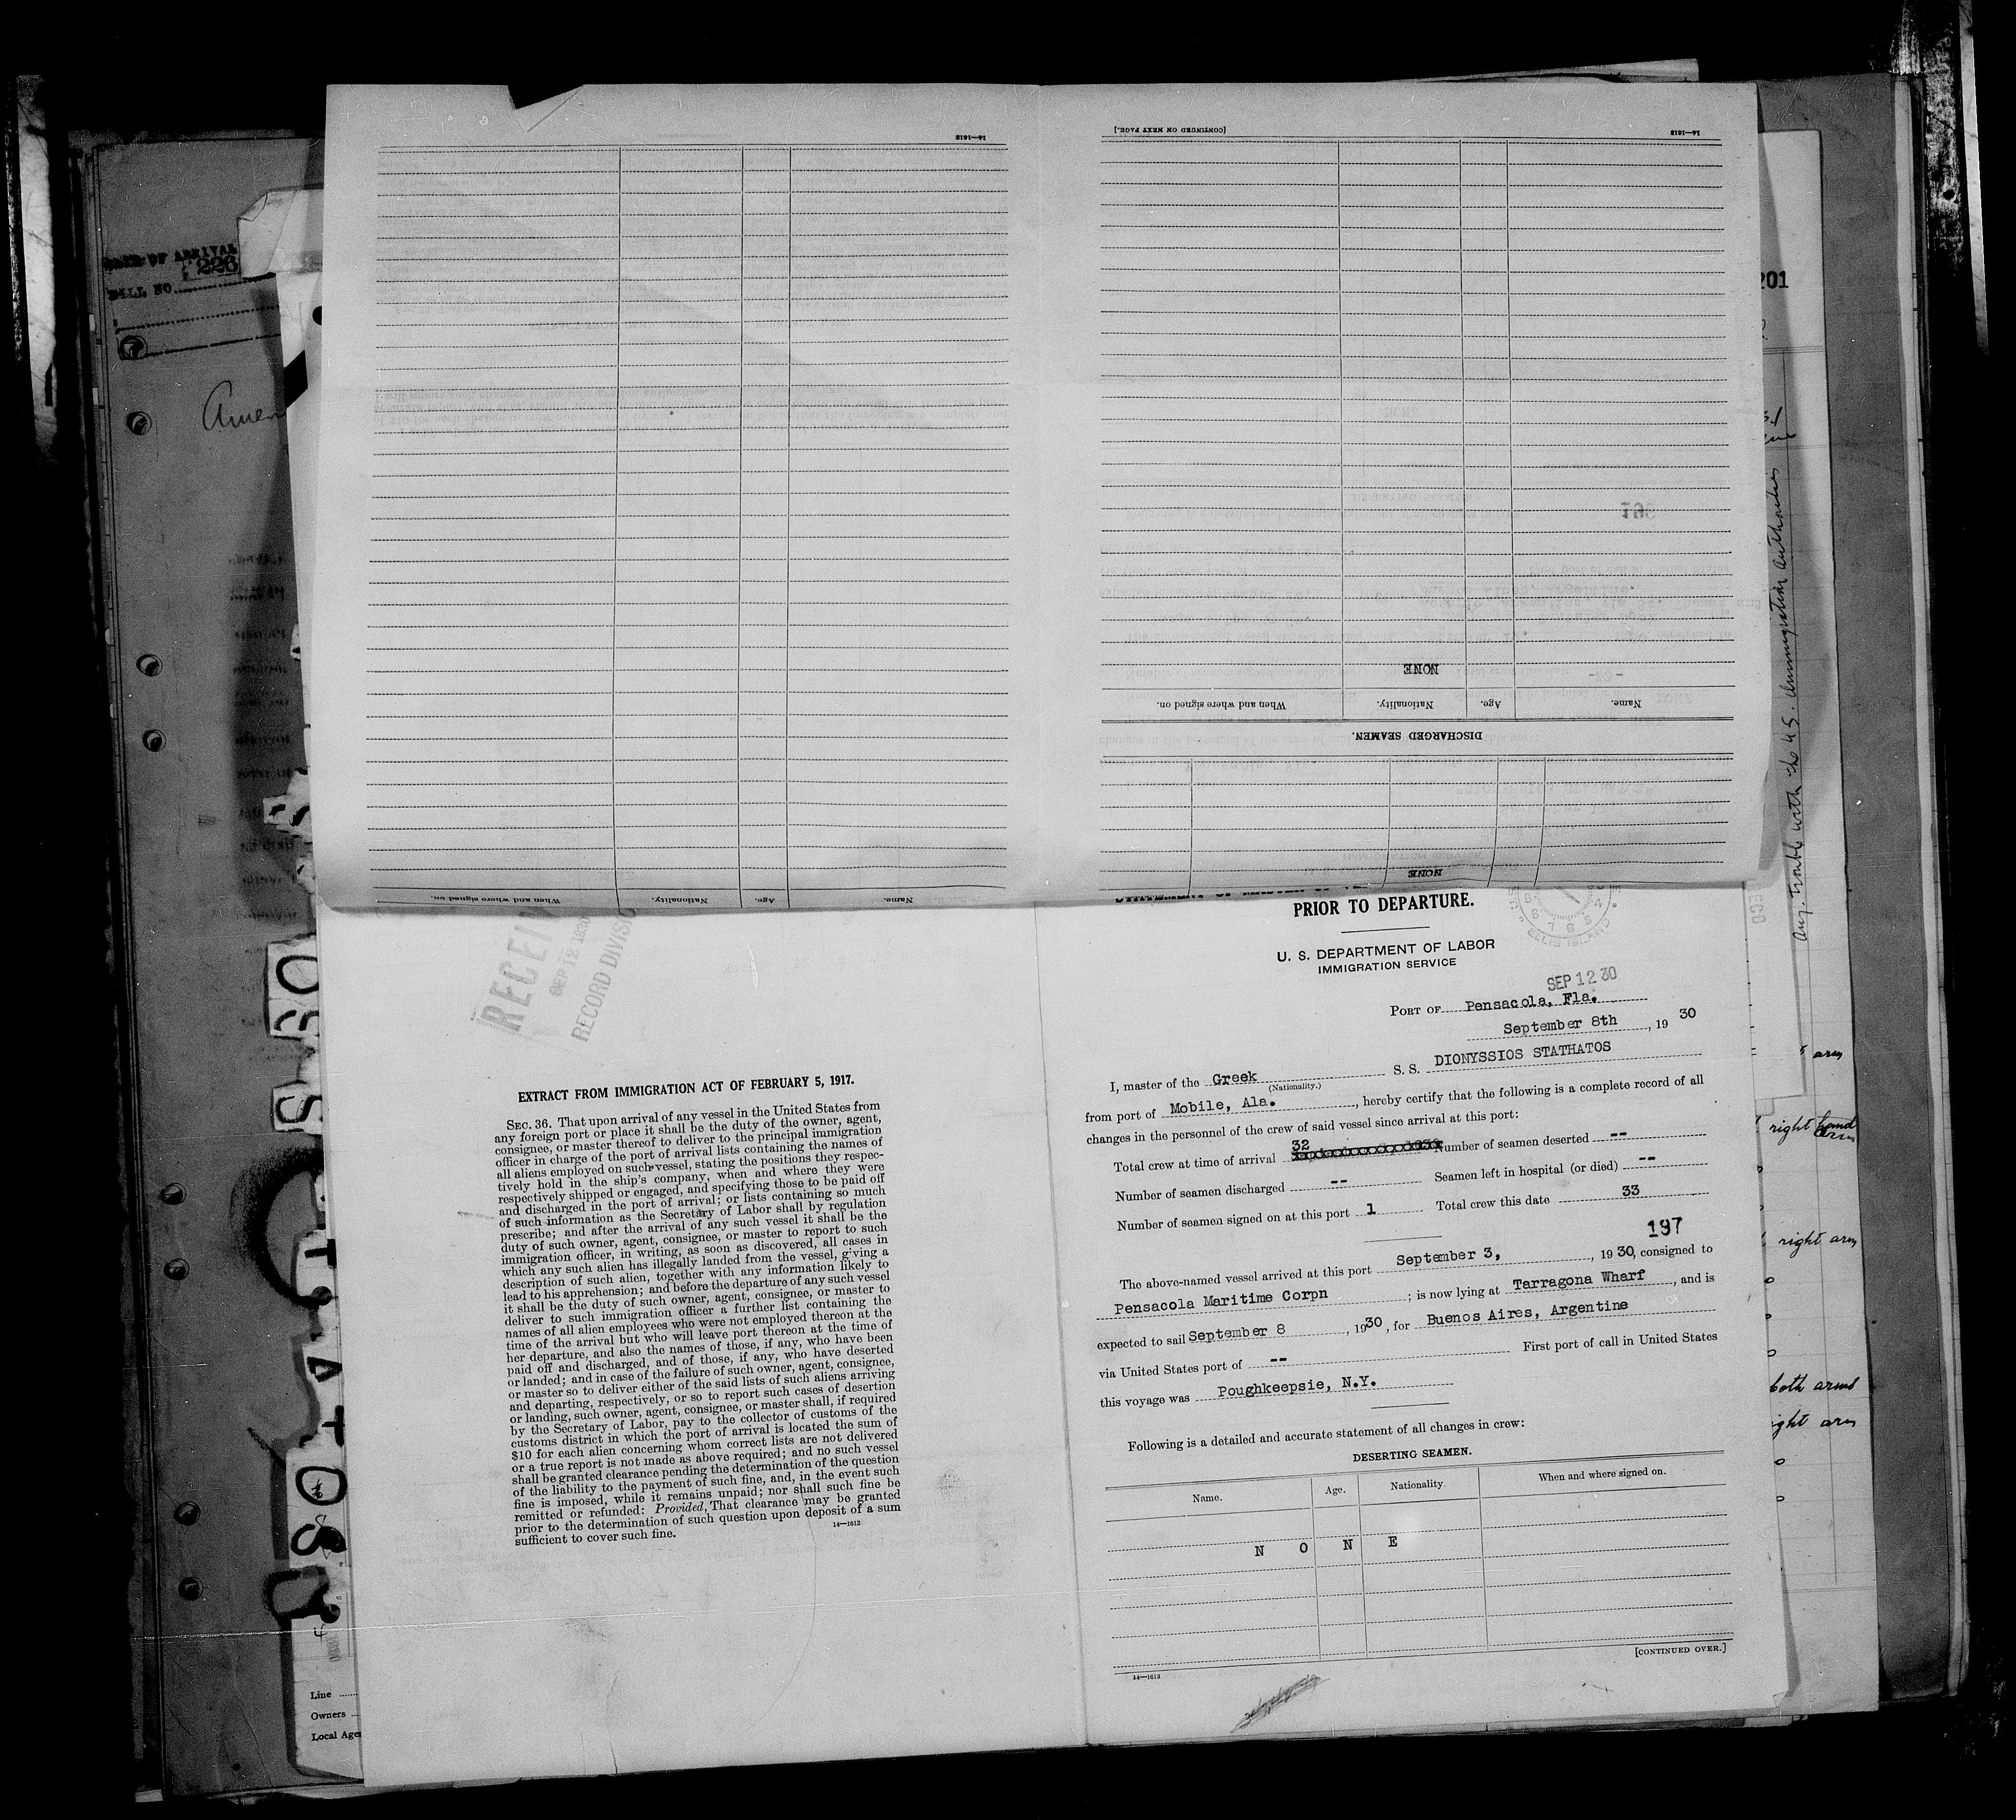 16—1613
[CONTINUED ON NEXT PAGE.]
16—1613
226
Amer
201
NONE
Name. Age. Nationality. When and where signed on.
DISCHARGED SEAMEN.
NONE
Name. Age. Nationality. When and where signed on.
any trouble with the U.S. Immigration Authorities
PRIOR TO DEPARTURE.
U. S. DEPARTMENT OF LABOR
IMMIGRATION SERVICE
ELLIS ISLAND
SEP 12 30
PORT OF Pensacola, Fla.
September 8th, 19 30
I, master of the Greek S. S. DIONYSSIOS STATHATOS
(Nationality.)
from port of Mobile, Ala., hereby certify that the following is a complete record of all
changes in the personnel of the crew of said vessel since arrival at this port:
Total crew at time of arrival 32 Number of seamen deserted --
Number of seamen discharged -- Seamen left in hospital (or died) --
Number of seamen signed on at this port 1 Total crew this date 33
197
The above-named vessel arrived at this port September 3, , 19 30, consigned to
Pensacola Maritime Corpn ; is now lying at Tarragona Wharf, and is
expected to sail September 8, 1930, for Buenos Aires, Argentine
via United States port of -- First port of call in United States
this voyage was Poughkeepsie, N.Y.
Following is a detailed and accurate statement of all changes in crew:
DESERTING SEAMEN.
Name. Age. Nationality. When and where signed on.
N O N E
[CONTINUED OVER.]
14—1613
RECEIV
SEP 12 1930
RECORD DIVISIO
EXTRACT FROM IMMIGRATION ACT OF FEBRUARY 5, 1917.
SEC. 36. That upon arrival of any vessel in the United States from
any foreign port or place it shall be the duty of the owner, agent,
consignee, or master thereof to deliver to the principal immigration
officer in charge of the port of arrival lists containing the names of
all aliens employed on such vessel, stating the positions they respec-
tively hold in the ship's company, when and where they were
respectively shipped or engaged, and specifying those to be paid off
and discharged in the port of arrival; or lists containing so much
of such information as the Secretary of Labor shall by regulation
prescribe; and after the arrival of any such vessel it shall be the
duty of such owner, agent, consignee, or master to report to such
immigration officer, in writing, as soon as discovered, all cases in
which any such alien has illegally landed from the vessel, giving a
description of such alien, together with any information likely to
lead to his apprehension; and before the departure of any such vessel
it shall be the duty of such owner, agent, consignee, or master to
deliver to such immigration officer a further list containing the
names of all alien employees who were not employed thereon at the
time of the arrival but who will leave port thereon at the time of
her departure, and also the names of those, if any, who have been
paid off and discharged, and of those, if any, who have deserted
or landed; and in case of the failure of such owner, agent, consignee,
or master so to deliver either of the said lists of such aliens arriving
and departing, respectively, or so to report such cases of desertion
or landing, such owner, agent, consignee, or master shall, if required
by the Secretary of Labor, pay to the collector of customs of the
customs district in which the port of arrival is located the sum of
$10 for each alien concerning whom correct lists are not delivered
or a true report is not made as above required; and no such vessel
shall be granted clearance pending the determination of the question
of the liability to the payment of such fine, and, in the event such
fine is imposed, while it remains unpaid; nor shall such fine be
remitted or refunded: Provided, That clearance may be granted
prior to the determination of such question upon deposit of a sum
sufficient to cover such fine.
14—1613
arm
right hand
right arm
both arms
ight arm
Line
Owners
Local Age